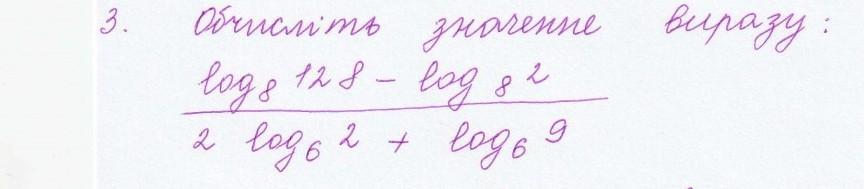 3. Обчисліть значення виразу:
log₈ 128 – log ₈ 2
2 log₆ 2 + log₆ 9